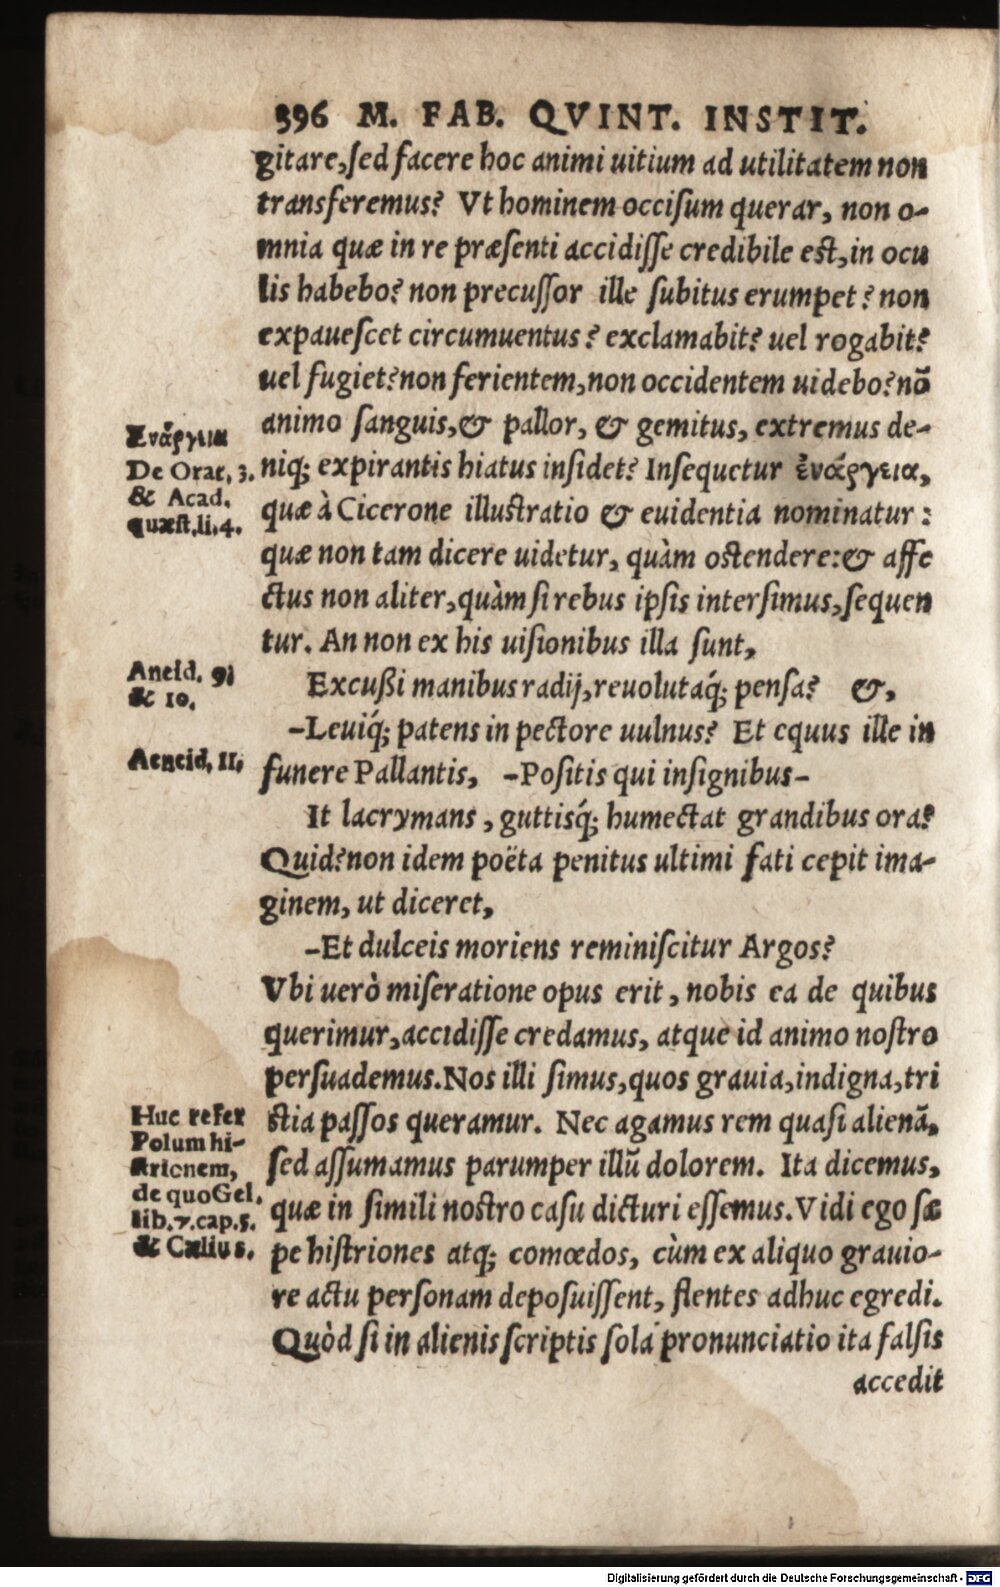 396 M. FAB. QVINT. INSTIT.
gitare,ſed facere hoc animi uitium ad utilitatem non
transferemus? Vt hominem occiſum querar, non o-
mnia quæ in re præſenti accidiſſe credibile eſt,in ocu
lis habebo? non precuſſor ille ſubitus erumpet? non
expaueſcet circumuentus? exclamabit? uel rogabit?
uel fugiet?non ferientem,non occidentem uidebo?nõ
animo ſanguis,& pallor, & gemitus, extremus de-
niq; expirantis hiatus inſidet? Inſequetur ἐνάργεια,
quæ à Cicerone illuſtratio & euidentia nominatur:
quæ non tam dicere uidetur, quàm oſtendere:& affe
ctus non aliter,quàm ſi rebus ipſis interſimus,ſequen
tur. An non ex his uiſionibus illa ſunt,
Excußi manibus radij,reuolutaq́; penſa? &,
-Leuiq́; patens in pectore uulnus? Et equus ille in
funere Pallantis, -Poſitis qui inſignibus-
It lacrymans, guttisq́; humectat grandibus ora?
Quid?non idem poëta penitus ultimi fati cepit ima-
ginem, ut diceret,
-Et dulceis moriens reminiſcitur Argos?
Vbi uerò miſeratione opus erit, nobis ea de quibus
querimur,accidiſſe credamus, atque id animo noſtro
perſuademus.Nos illi ſimus,quos grauia,indigna,tri
ſtia paſſos queramur. Nec agamus rem quaſi alienã,
ſed aſſumamus parumper illũ dolorem. Ita dicemus,
quæ in ſimili noſtro caſu dicturi eſſemus.Vidi ego ſæ
pe hiſtriones atq; comœdos, cùm ex aliquo grauio-
re actu perſonam depoſuiſſent, flentes adhuc egredi.
Quòd ſi in alienis ſcriptis ſola pronunciatio ita falſis
accedit
Ἐνάργεια
De Orat, 3.
& Acad.
quæſt.li.4.
Aneid. 9;
& 10.
Aeneid, II.
Huc refer
Polum hi-
ſtrionem,
de quo Gel.
lib.7.cap.5.
& Cælius.
Digitalisierung gefördert durch die Deutsche Forschungsgemeinschaft - DFG